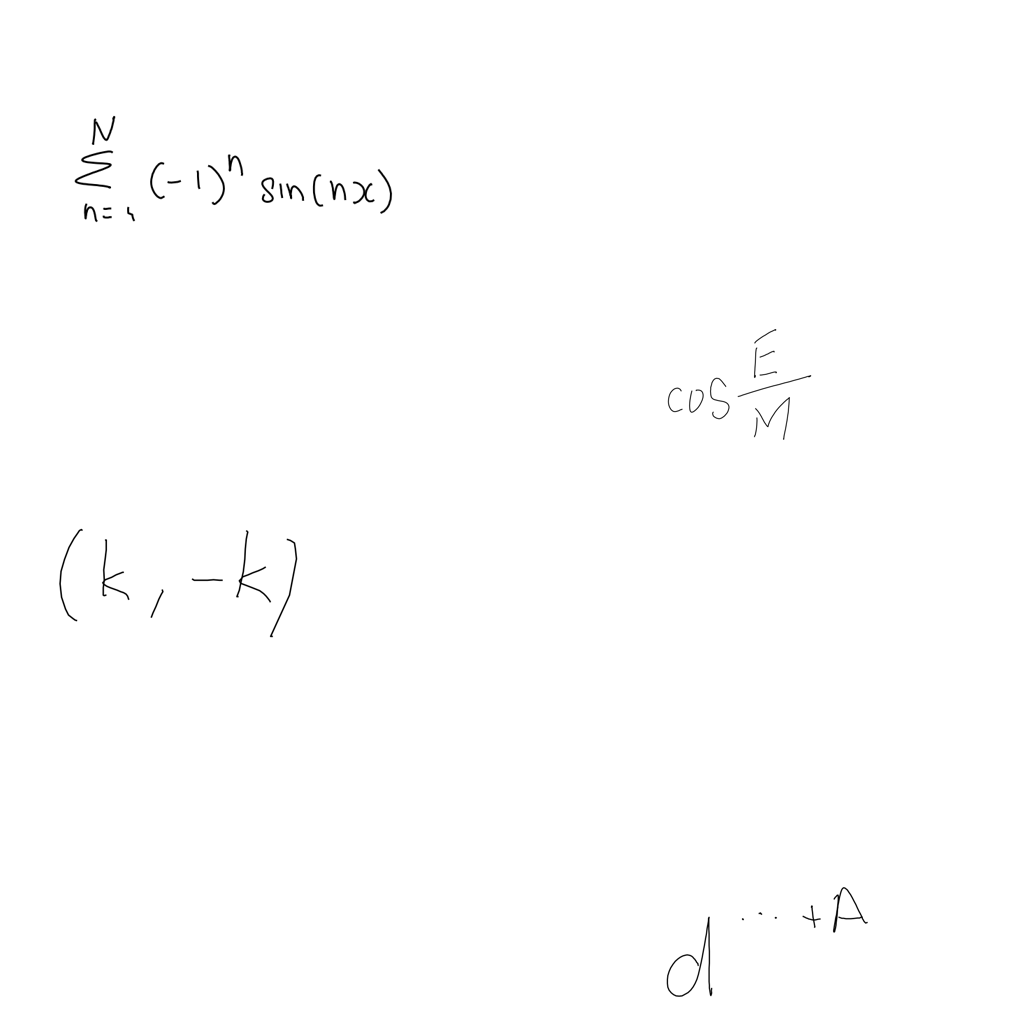 \sum_{n=1}^{N} (-1)^n \sin(nx)
\cos \frac{E}{M}
(k, -k)
d^{\cdots + A}